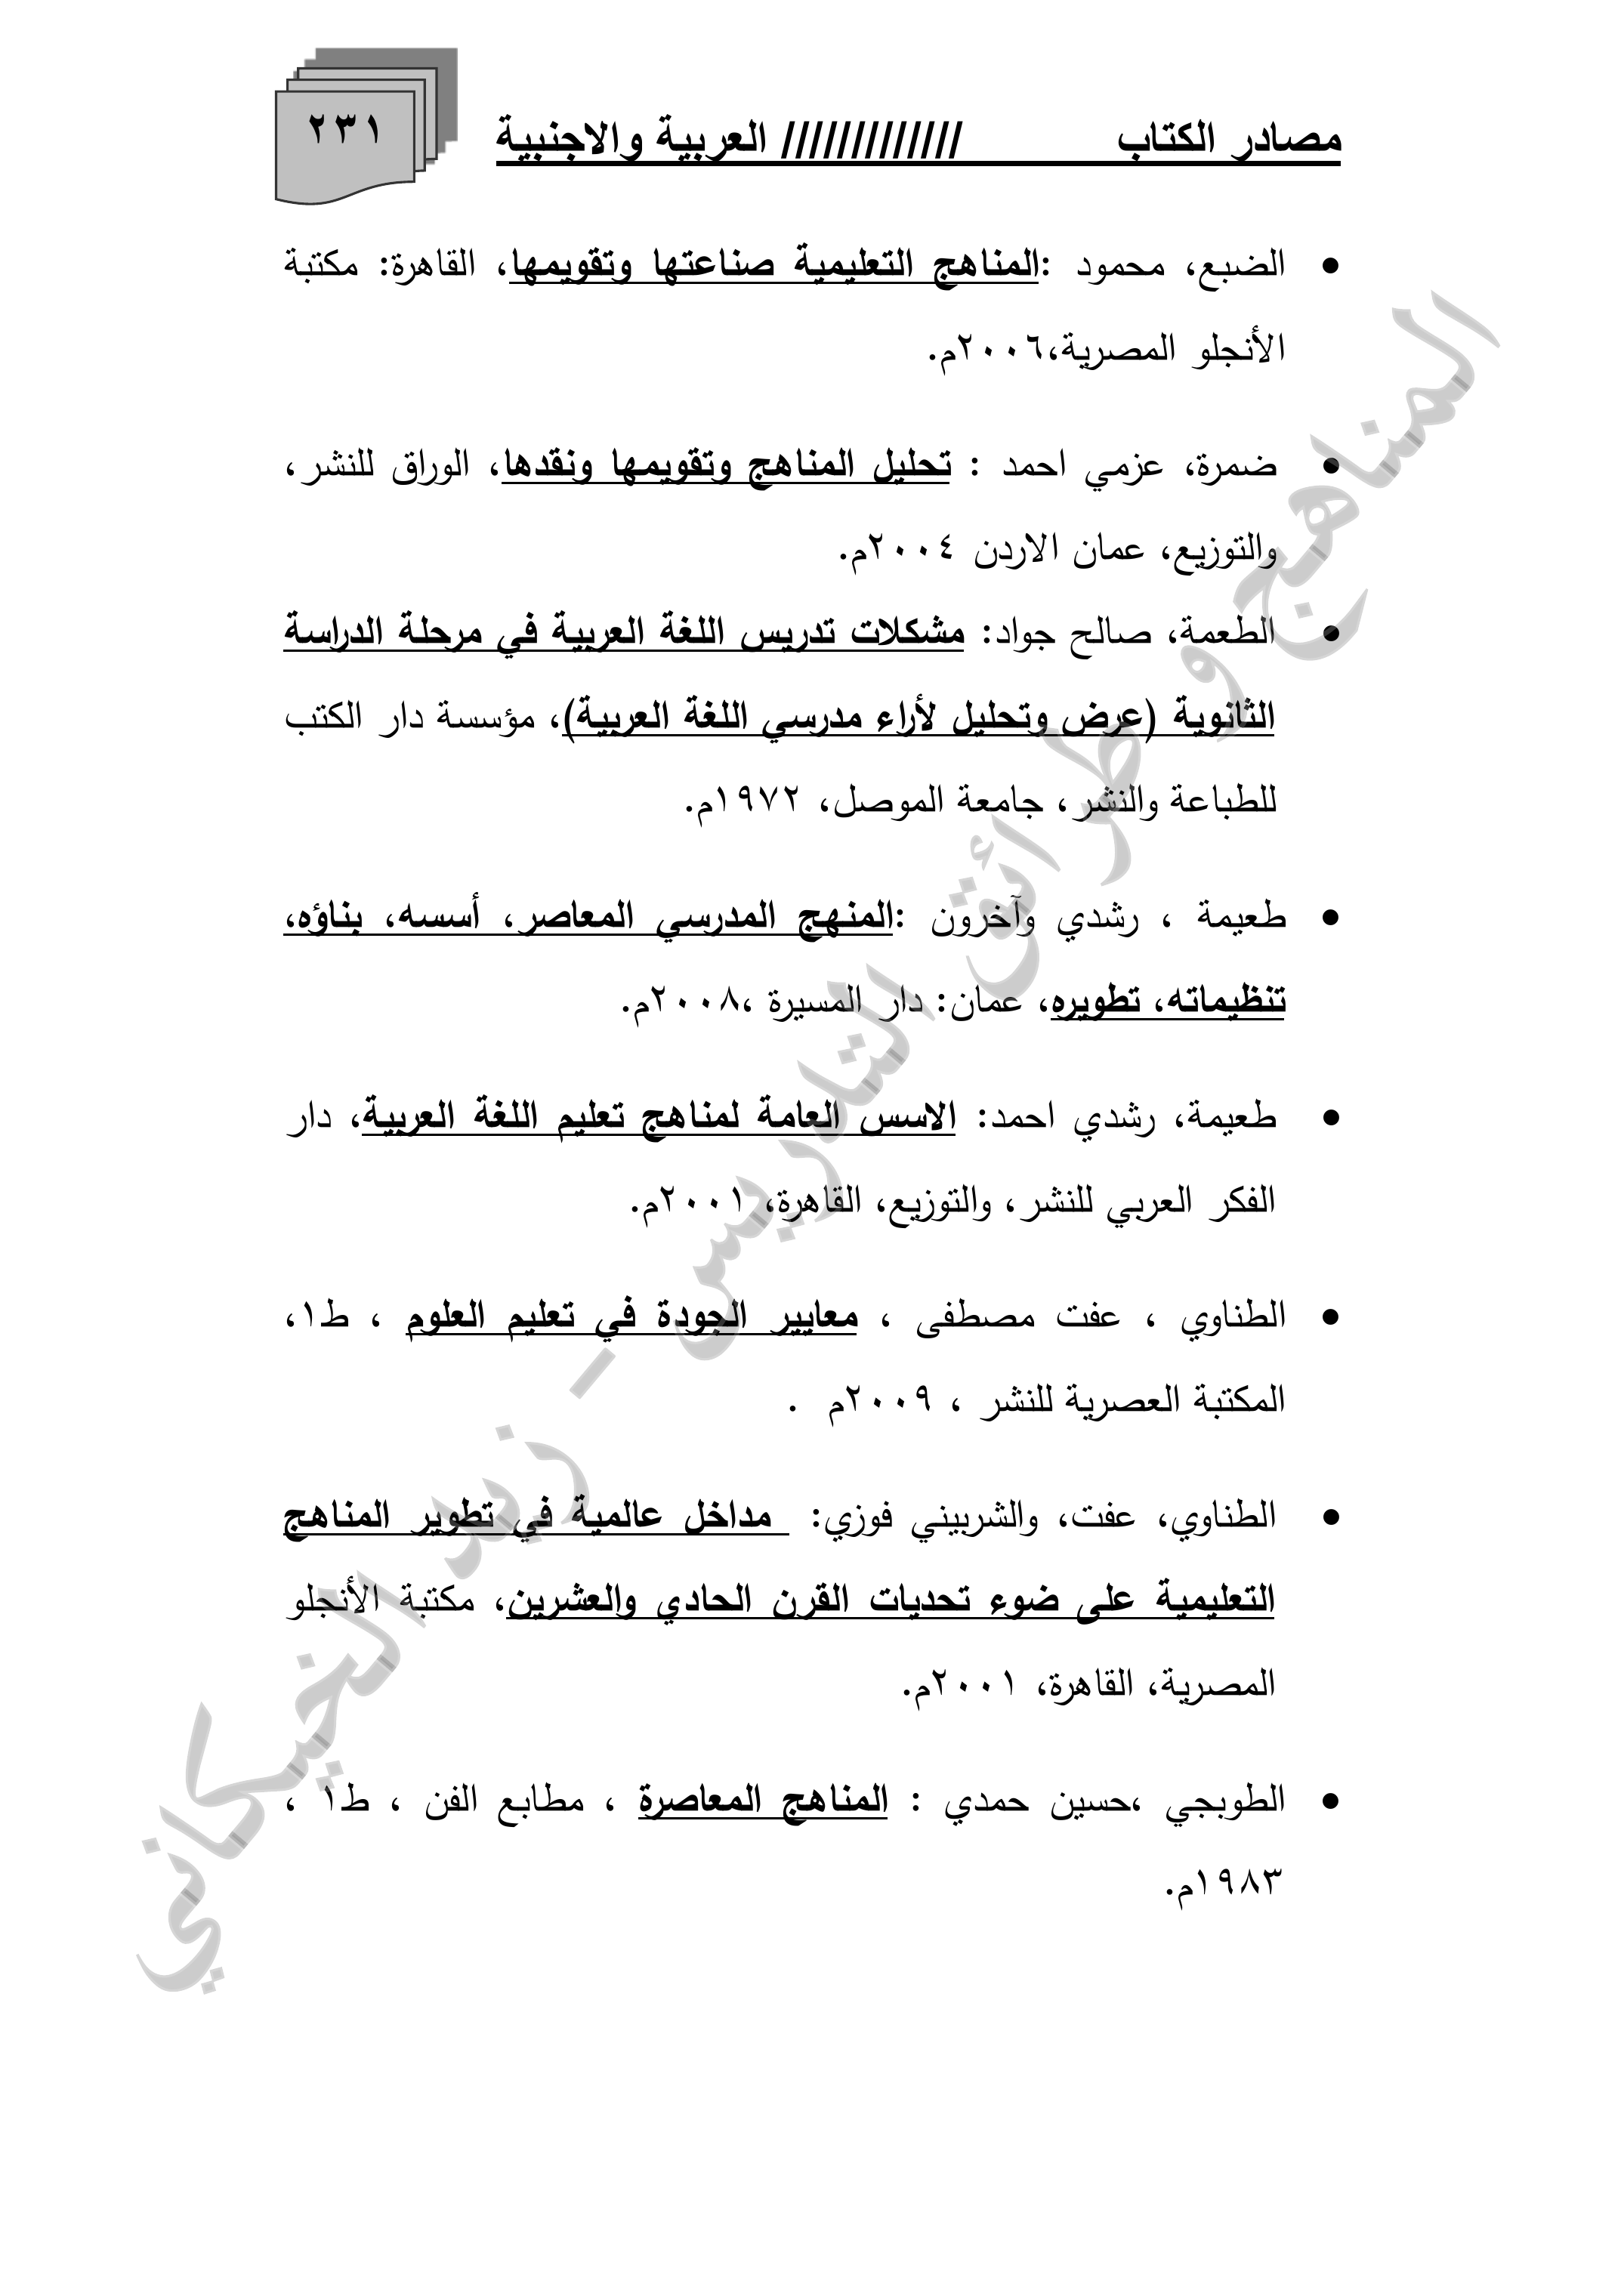 مصادر الكتاب ///////////// العربية والاجنبية
٢٣١
• الضبع، محمود :المناهج التعليمية صناعتها وتقويمها، القاهرة: مكتبة
الأنجلو المصرية،٢٠٠٦م.
• ضمرة، عزمي احمد : تحليل المناهج وتقويمها ونقدها، الوراق للنشر،
والتوزيع، عمان الاردن ٢٠٠٤م.
• الطعمة، صالح جواد: مشكلات تدريس اللغة العربية في مرحلة الدراسة
الثانوية (عرض وتحليل لأراء مدرسي اللغة العربية)، مؤسسة دار الكتب
للطباعة والنشر، جامعة الموصل، ١٩٧٢م.
• طعيمة ، رشدي وآخرون :المنهج المدرسي المعاصر، أسسه، بناؤه،
تنظيماته، تطويره، عمان: دار المسيرة ،٢٠٠٨م.
• طعيمة، رشدي احمد: الاسس العامة لمناهج تعليم اللغة العربية، دار
الفكر العربي للنشر، والتوزيع، القاهرة، ٢٠٠١م.
• الطناوي ، عفت مصطفى ، معايير الجودة في تعليم العلوم ، ط١،
المكتبة العصرية للنشر ، ٢٠٠٩م .
• الطناوي، عفت، والشربيني فوزي: مداخل عالمية في تطوير المناهج
التعليمية على ضوء تحديات القرن الحادي والعشرين، مكتبة الأنجلو
المصرية، القاهرة، ٢٠٠١م.
• الطوبجي ،حسين حمدي : المناهج المعاصرة ، مطابع الفن ، ط١ ،
١٩٨٣م.
المناهج وطرائق التدريس - زيد الخيكاني